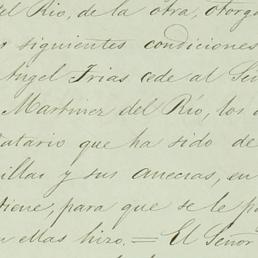 el Rio, de la otra, otorga
siguientes condiciones
Angel Frias cede al Señ
Martinez del Rio, los
atario que ha sido de
illas y sus anecsas, en
tiene, para que se le p
n ellas hizo. = El Señor